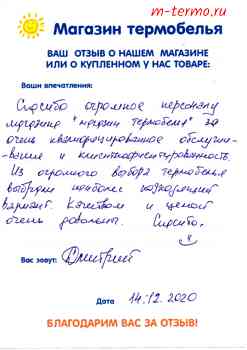 m-termo.ru
Магазин термобелья
ВАШ ОТЗЫВ О НАШЕМ МАГАЗИНЕ
ИЛИ О КУПЛЕННОМ У НАС ТОВАРЕ:
Ваши впечатления:
Спасибо огромное персоналу
магазина "магазин термобелья" за
очень квалифицированное обслужи-
вание и клиентоориентированность.
Из огромного выбора термобелья
выбрали наиболее подходящий
вариант. Качеством и ценой
очень довольны. Спасибо.
Вас зовут: Дмитрий
Дата 14.12.2020
БЛАГОДАРИМ ВАС ЗА ОТЗЫВ!